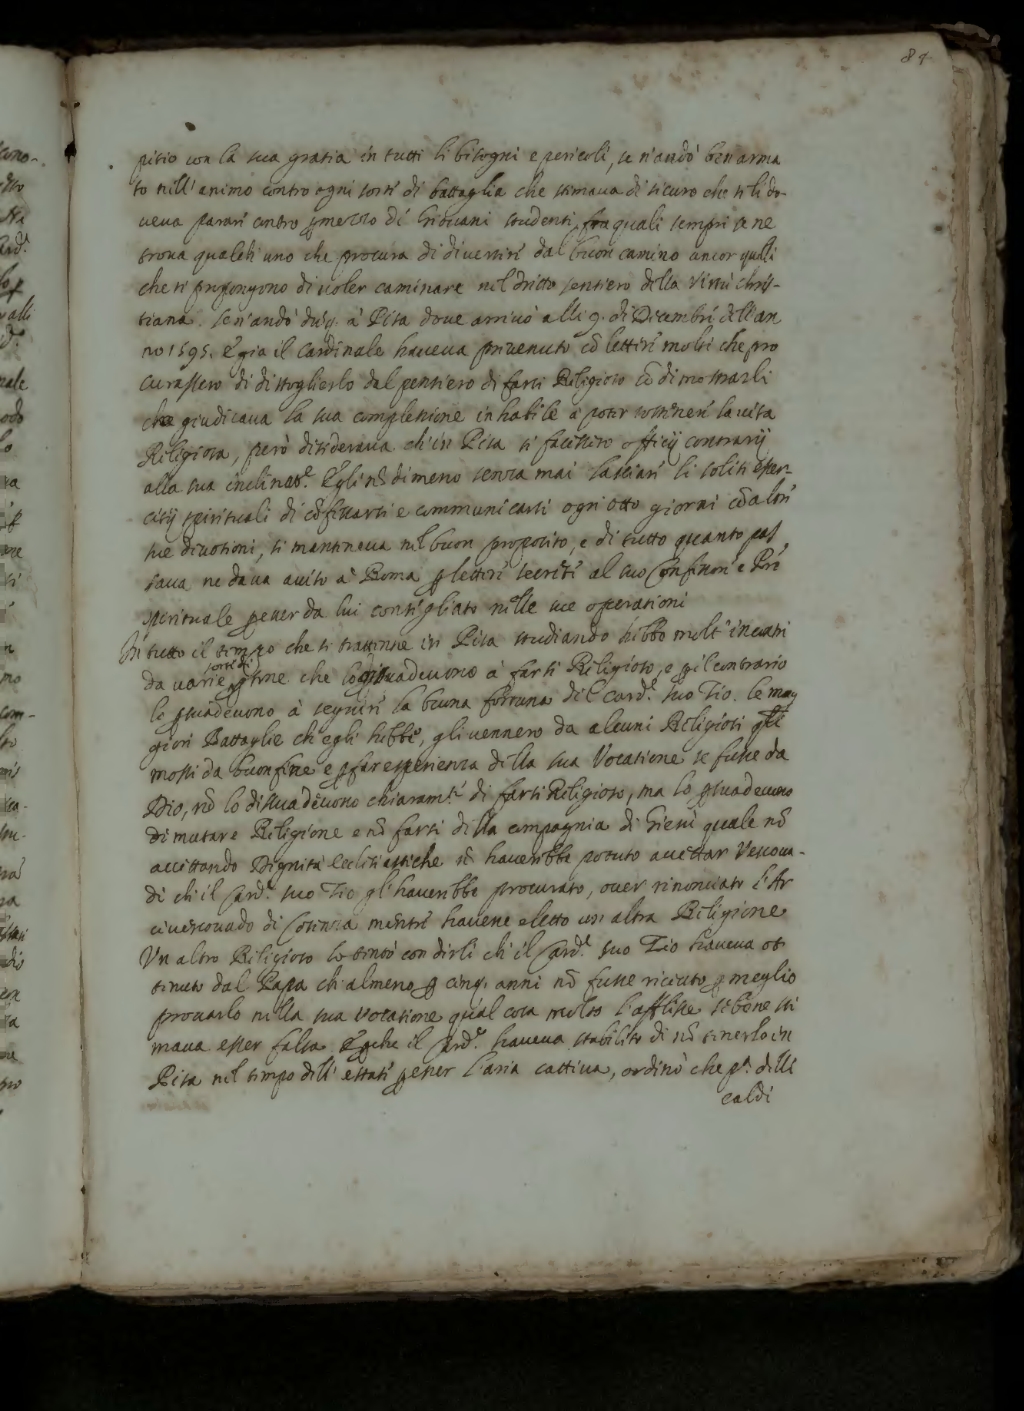 84
pitio con la sua gratia in tutti li bisogni e pericoli, se n'andò ben arma
to nell'animo contro ogni sorte di battaglia che stimava di sicuro che se li do-
veva parare contro ꝑ mezzo di Giovani studenti, fra quali sempre se ne
trova qualch uno che procura di divertire dal buon camino ancor quelli
che si propongono di voler caminare nel dritto sentiero della Virtù chris-
tiana. Se n'andò a Pisa dove arrivò alli 9. di Dicembre dell'an
no 1595. E già il Cardinale haveva prevenuto cõ lettere molti che pro
curassero di distoglierlo dal pensiero di farsi Religioso cõ dimostrarli
che giudicava la sua complessione inhabile à poter sostenere la vita
Religiosa, però desiderava ch'in Pisa si facessero officij contrarij
alla sua inclinat.e Egli nõdimeno senza mai lasciare li soliti eser-
citij spirituali di cõfessarsi e communicarsi ogni otto giorni cõ altre
sue divotioni, si manteneva nel buon proposito, e di tutto quanto pas
sava ne dava aviso à Roma ꝑ lettere secrete al suo Confessore e Pre
spirituale ꝑ esser da lui consigliato nelle sue operationi
In tutto il tempo che si trattenne in Pisa studiando hebbe molt'incontri
da varie sorti di ꝑsone che lo ꝑsuadevono à farsi Religioso, e ꝑ il contrario
le ꝑsuadevono à seguire la buona fortuna del Card.e suo Tio. le mag
giori Battaglie ch'egli hebbe, gli vennero da alcuni Religiosi
mossi da buon fine e ꝑ far esperienza della sua Vocatione se fusse da
Dio, nõ lo dissuadevono chiaram.te di farsi Religioso, ma lo ꝑsuadevono
di mutare Religione e nõ farsi della Compagnia di Giesù quale nõ
accettando Dignità Ecclesiastiche nõ haverebbe potuto accettar Vescova-
di ch'il Card.e suo Tio gl'haverebbe procurato, over rinonciato l'Ar
civescovado di Cosenza mentre havesse eletto un altra Religione
Un altro Religioso lo tentò con dirli ch'il Card.e suo Tio haveva ot
tenuto dal Papa ch'almeno ꝑ cinq. anni nõ fusse ricevuto ꝑ meglio
provarlo nella sua vocatione qual cosa molto l'afflisse sebene sti
mava esser falsa. E ꝑche il Card.e haveva stabilito di nõ tenerlo in
Pisa nel tempo dell'estate ꝑ esser l'aria cattiva, ordinò che p.a delli
caldi